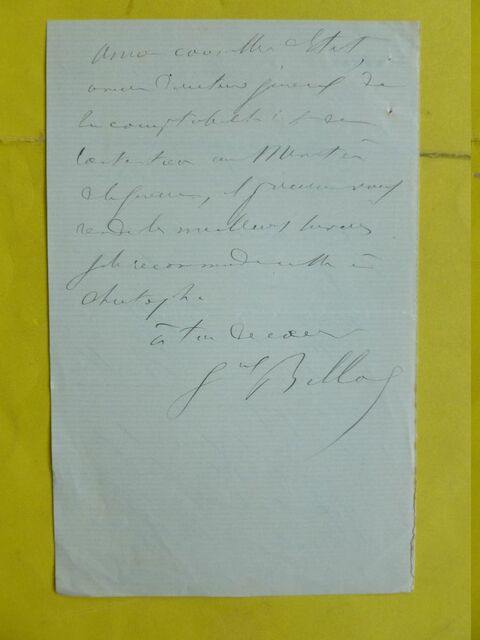 Ancien conseiller d'Etat,
ancien Directeur général de
la comptabilité & du
contentieux au Ministère
de la guerre, et pourra vous
rendre les meilleurs services
je le recommande aussi à
Christophe
à toi de coeur
Gal Billot